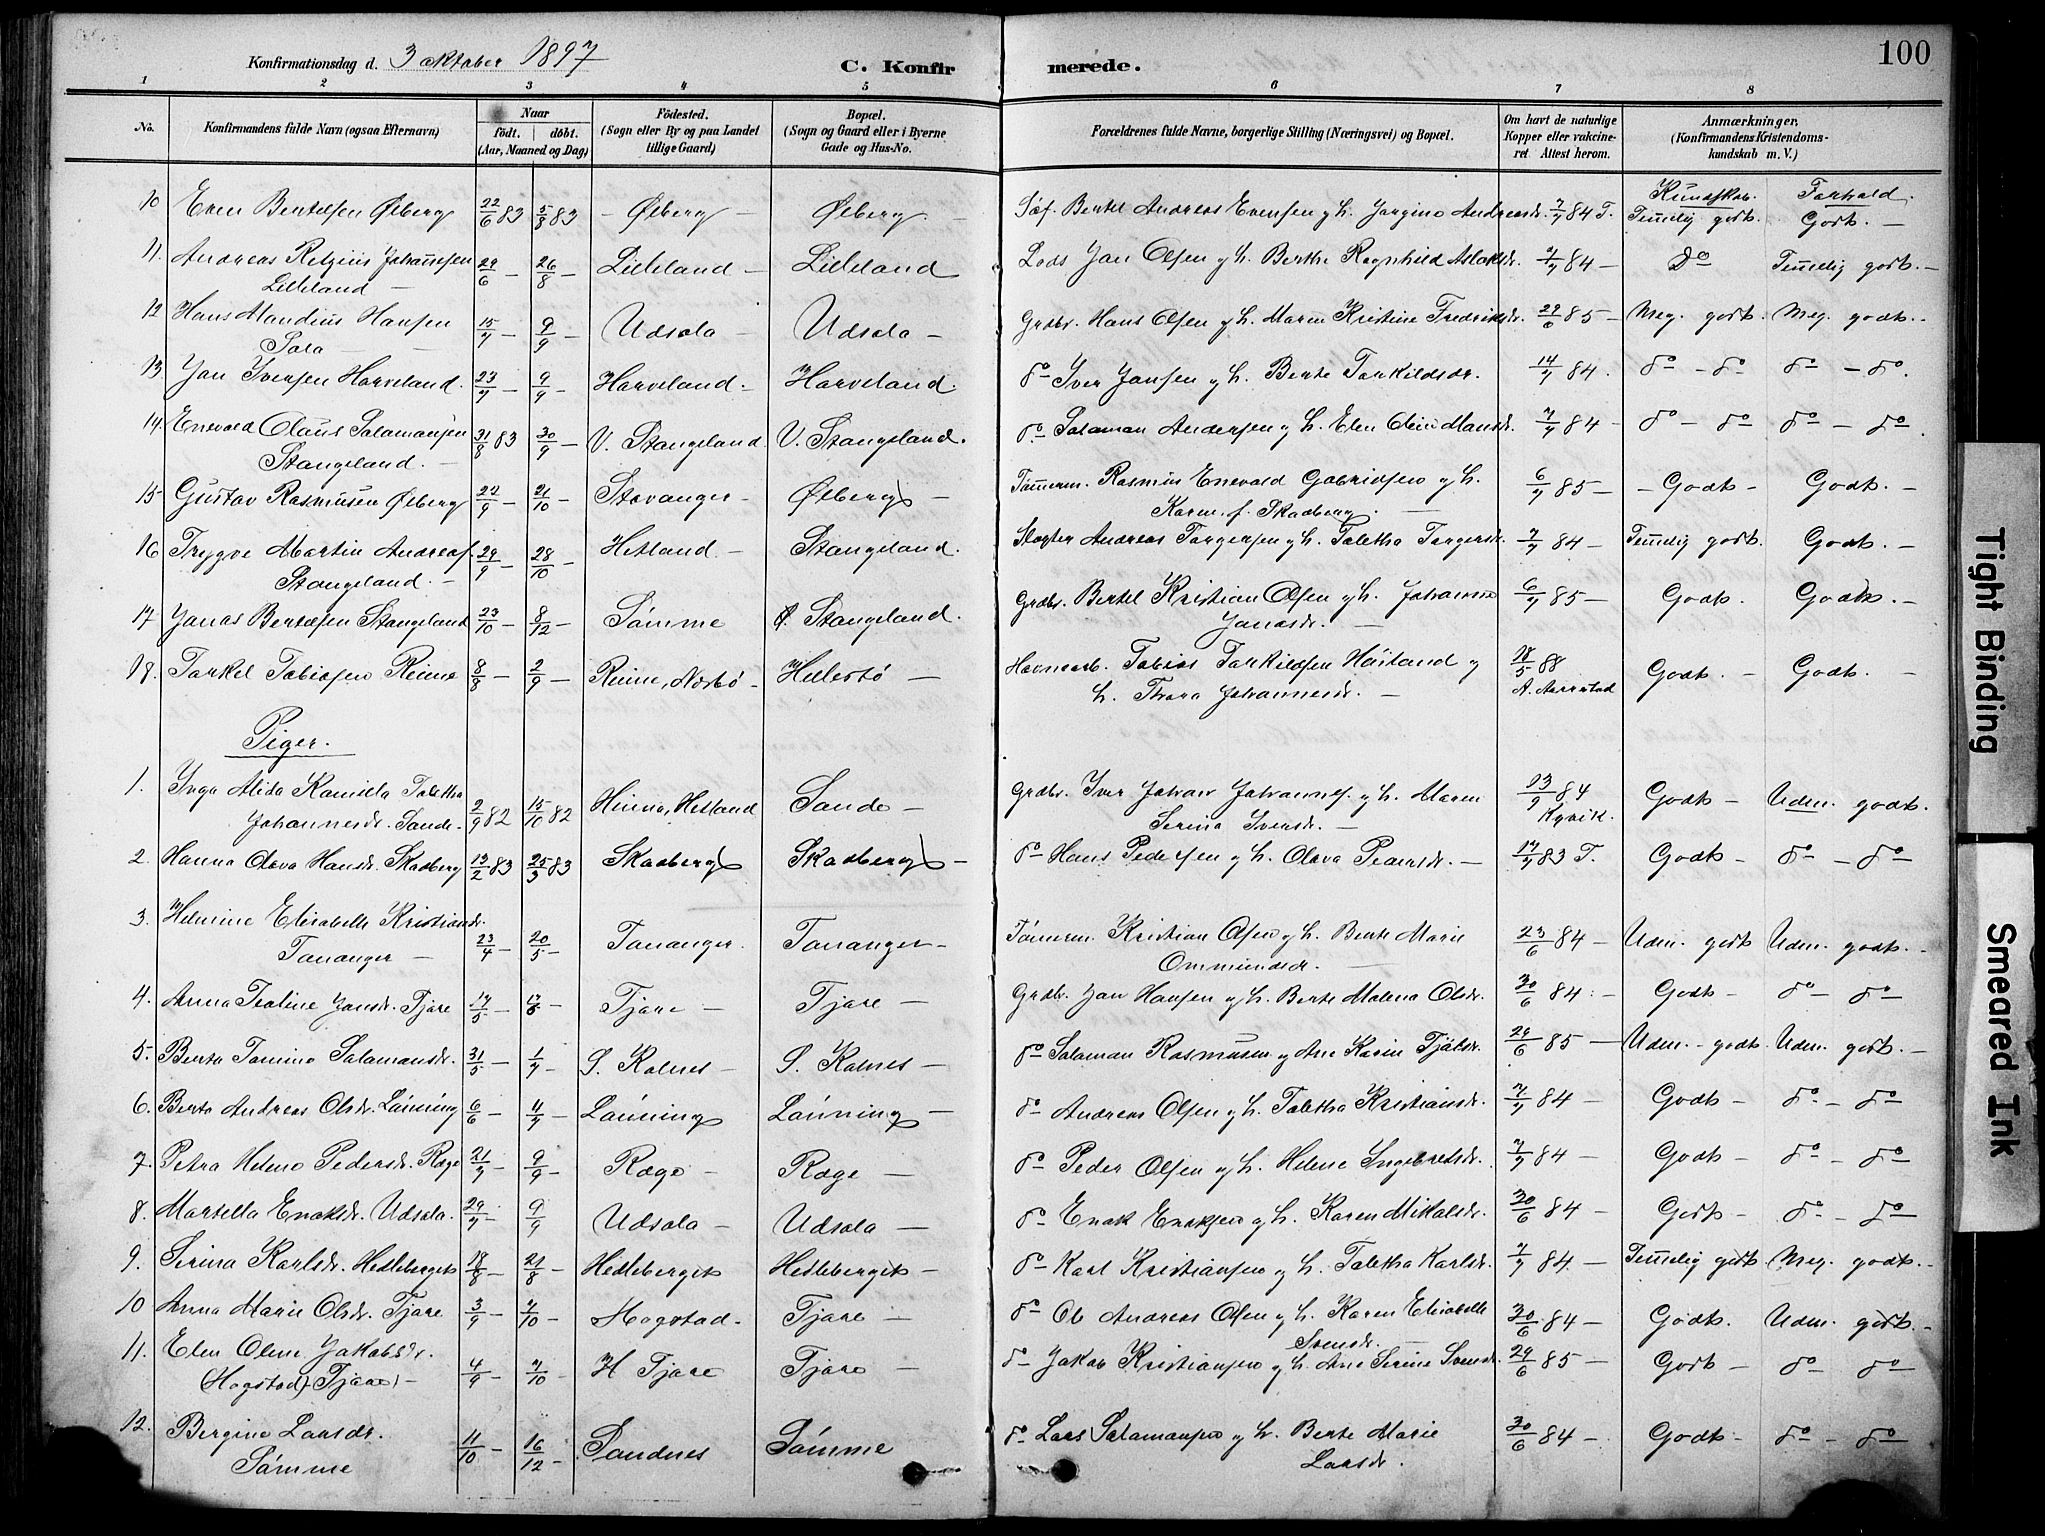 Konfirmationsdag d. 3 oktober 1897
C. Konfir merede.
100
1 2 3 4 5 6 7 8
No.
Konfirmandens fulde Navn (ogsaa Efternavn)
Naar
födt. döbt.
(Aar, Maaned og Dag)
Födested.
(Sogn eller By og paa Landet
tillige Gaard)
Bopæl.
(Sogn og Gaard eller i Byerne
Gade og Hus-No.
Forældrenes fulde Navne, borgerlige Stilling (Næringsvei) og Bopæl.
Om havt de naturlige
Kopper eller vakcine-
ret Attest herom.
Anmærkninger,
(Konfirmandens Kristendoms-
kundskab m. V.)
Kundskab. Forhold.
10 Even Bertelsen Ølberg 22/6 83 5/8 83 - Ølberg - Ølberg. Bertel Andreas Evensen y h. Jorgine Andreasdr. 7/7 84 T. Temelig godt. Godt. -
11. Andreas Retzius Johannesen
Lilleland - 29/6 - 26/8 - Lilleland - Lilleland Lods Jan Olsen y h. Berthe Ragnhild Aslaksdr. 7/7 84 - Do Temelig godt. -
12 Hans Mandius Hansen
Sola - 15/7 - 9/9 - Udsola - Udsola - Grdbr. Hans Olsen y h. Maren Kristine Fredriksdr. 29/6 85 - Meg. godt. Meg. godt. -
13 Jan Iversen Harveland. 23/7 - 9/9 - Harveland. Harveland. do Iver Jansen y h. Berte Torkildsdr. 14/7 84. do - do do - do.
14. Enevald Olaus Salamonsen
Stangeland. - 31/8 83 30/9 - V. Stangeland V. Stangeland. do Salamon Andersen y h. Elen Oline Mansdr. 7/7 84 - do - do do - do.
15 Gustav Rasmusen Ølberg 22/9 - 21/10 - Stavanger - Ølberg - Tømerm. Rasmus Enevald Gabrielsen y h.
Karen f. Skadberg. - 6/7 85 - - Godt - Godt. -
16 Trygve Martin Andreas.
Stangeland. - 29/9 - 28/10 - Hetland - Stangeland. Slagter Andreas Torgersen y h. Taletha Torgersdr. 7/7 84 - Temelig godt. Godt. -
17 Jonas Bertelsen Stangeland 23/10 - 8/12 - Sømme Ø. Stangeland. Grdbr. Bertel Kristian Olsen y h. Johanne
Jonasdr. - 6/7 85 - Godt. Godt. -
18. Torkel Tobiasen Reime 8/8 - 2/9 - Reime, Nærbø - Hellestø - Havnearb. Tobias Torkildsen Høiland y
h. Thora Johannesdr. - 18/5 88
A. Aarrestad Godt. - Godt. -
Piger.
1. Inga Alida Kamilla Taletha
Johannesdr. Sande. 2/9 82 15/10 82 Hinna, Hetland Sande - Grdbr. Iver Johan Johannes. y h. Maren
Serina Svensdr. - 13/9 84
Kyvik. Godt - Udm. godt.
2. Hanna Olava Hansdr. Skadberg 13/2 83 25/3 83 Skadberg Skadberg - do Hans Pedersen y h. Olava Pedersdr. - 17/7 83 T. Godt - do - do
3. Helmine Elisabeth Kristiansdr.
Tananger - 23/4 - 20/5 - Tananger. Tananger - Tömrm. Kristian Olsen y h. Berte Marie
Ommundsdr. - 23/6 84 - Udm. godt Udm. godt. -
4. Anna Tealine Jansdr. Tjare 17/5 - 17/6 - Tjare - Tjare - Grdbr. Jan Hansen y h. Berte Malena Olsdr. 30/6 84 - Godt - do - do
5. Berta Tomine Salamonsdr. 31/5 - 1/7 - S. Kolnes - S. Kolnes - do Salamon Rasmusen y Ane Karin 29/6 85 - Udm. - godt Udm. godt. -
6. Berte Andrea Olsdr. Lönning 6/6 - 4/7 - Lönning Lönning - do Andreas Olsen y h. Taletha Kristiansdr. 7/7 84 - Godt - do - do
7. Petra Helene Pedersdr. Ræge 21/7 - 9/9 - Ræge - Ræge - do Peder Olsen y h. Helene Ingebretsdr. 7/7 84 - Godt - do - do
8. Martella Enoksdr. Udsola. 29/7 - 9/9 - Udsola - Udsola - do Enok Enoksen y h. Karen Mikalsdr. 30/6 84 - Godt - do - do
9. Serina Karlsdr. Hedleberget 18/8 - 21/8 - Hedleberget Hedleberget - do Karl Kristiansen y h. Taletha Karlsdr. 7/7 84 - Temelig godt Meg. godt. -
10 Anna Marie Olsdr. Tjare 3/9 - 7/10 - Hogstad. Tjare - do Ole Andreas Olsen y h. Karen Elisabeth
Svensdr. - 30/6 84 - Godt. Udm. godt. -
11. Elen Oline Jakobsdr.
(Hogstad) Tjare) - 4/9 - 7/10 - H Tjare Tjare - do Jakob Kristiansen y h. Ane Serine Svensdr. 29/6 85 - Godt - do - do
12. Bergine Larsdr.
Sømme 11/10 - 16/12 - Sandnes Sømme do Lars Salamonsen y h. Berte Marie
Larsdr. 30/6 84 - Godt - do - do
Tight Binding
Smeared Ink